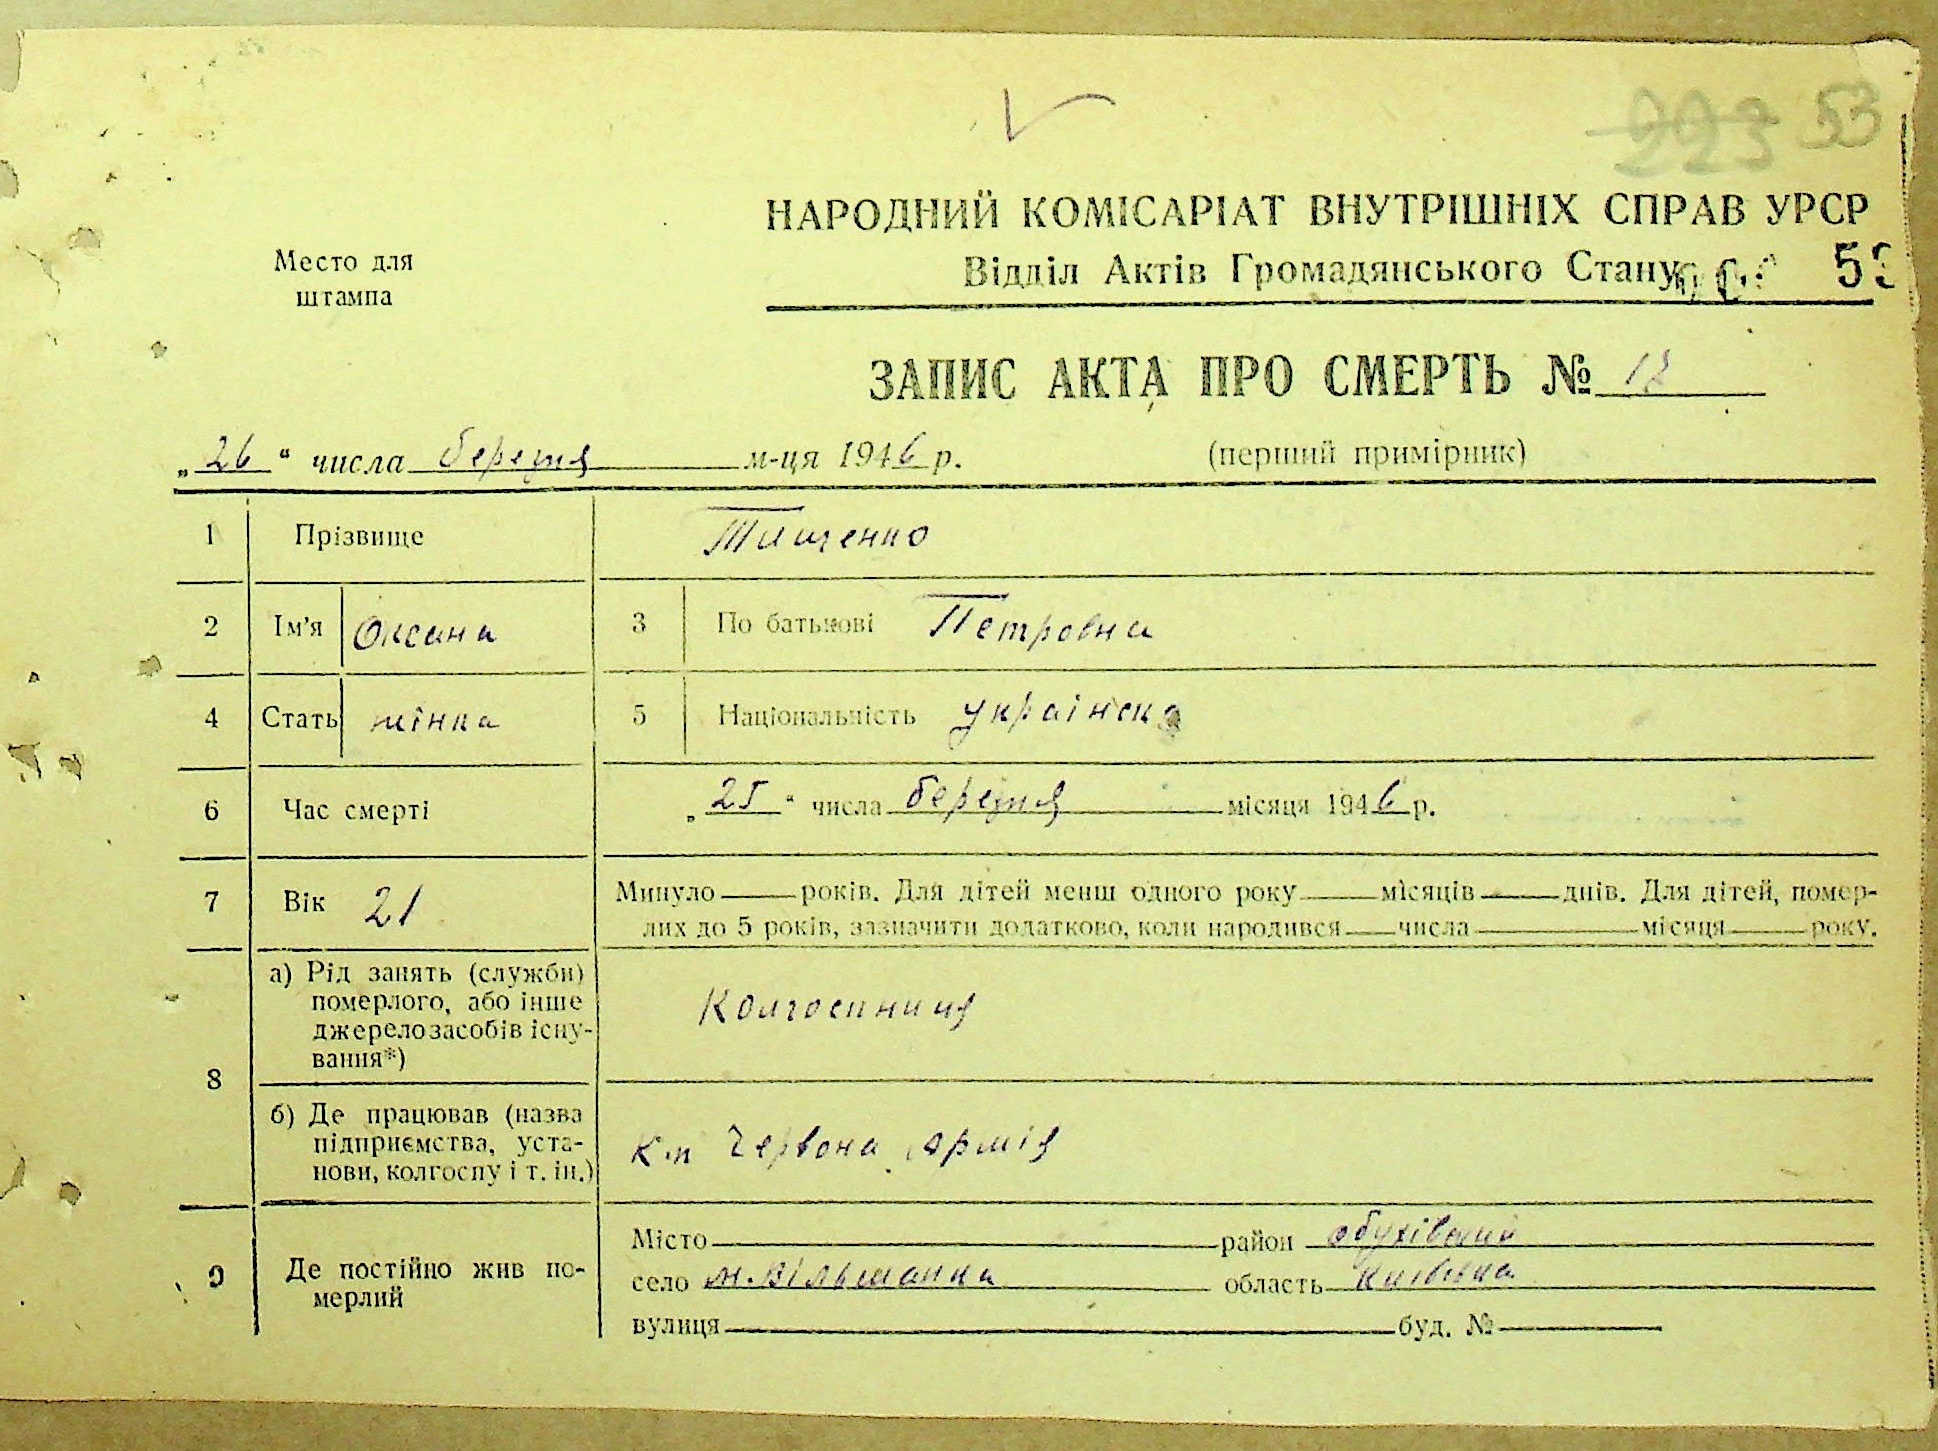 223 53
НАРОДНИЙ КОМІСАРІАТ ВНУТРІШНІХ СПРАВ УРСР
Место для
штампа
Відділ Актів Громадянського Стану
53
ЗАПИС АКТА ПРО СМЕРТЬ № 12
„26“ числа березня м-ця 1946 р. (перший примірник)
1 Прізвище Тищенко
2 Ім'я Оксана 3 По батькові Петровна
4 Стать жінка 5 Національність українка
6 Час смерті „25“ числа березня місяця 1946 р.
7 Вік 21 Минуло років. Для дітей менш одного року місяців днів. Для дітей, помер-
лих до 5 років, зазначити додатково, коли народився числа місяця року.
8 а) Рід занять (служби)
померлого, або інше
джерело засобів існу-
вання*)
Колгоспниця
б) Де працював (назва
підприємства, уста-
нови, колгоспу і т. ін.)
К-п Червона Армія
9 Де постійно жив по-
мерлий
Місто район Обухівский
село м. Вільшанка область Київска
вулиця буд. №